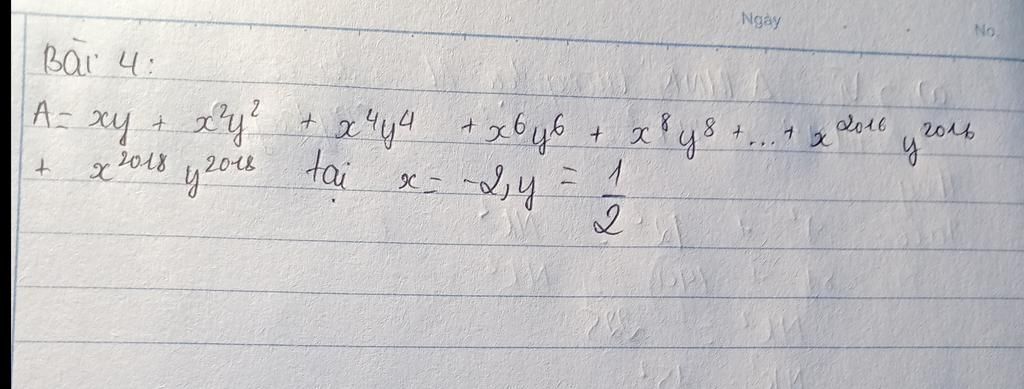 Ngày
No.
Bài 4:
A = xy + x²y² + x⁴y⁴ + x⁶y⁶ + x⁸y⁸ + ... + x²⁰¹⁶ y²⁰¹⁶
+ x²⁰¹⁸ y²⁰¹⁸ tại x = -2, y = 1/2